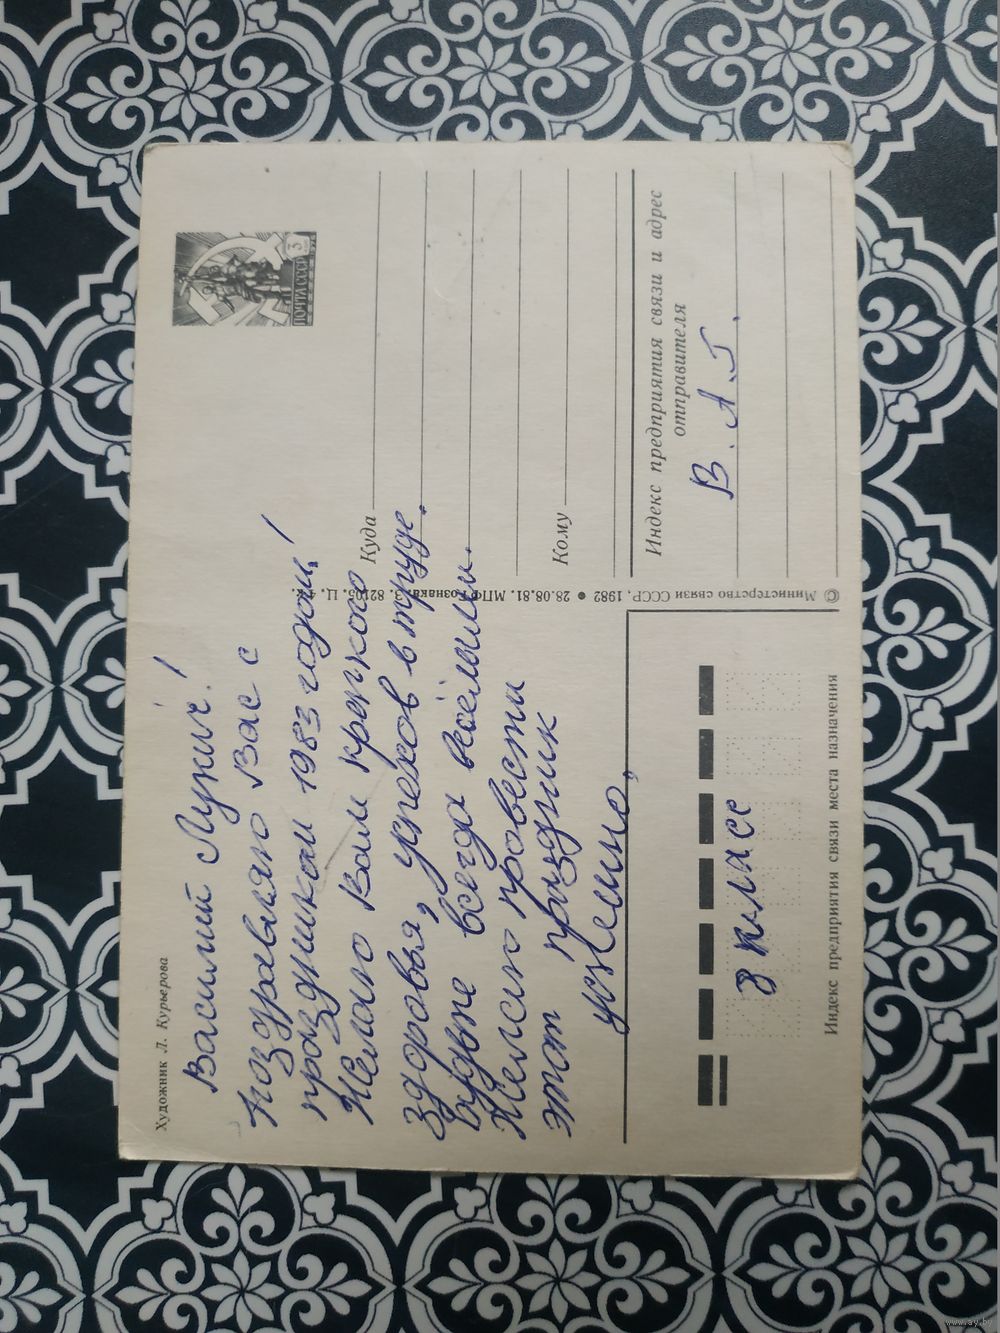 Художник Л. Курьерова
Василий Лукич!
поздравляю Вас с
праздником 1983 годом!
Желаю Вам крепкого
здоровья, успехов в труде.
будьте всегда весёлыми.
Желаю провести
этот праздник
успешно,
8 класс
Индекс предприятия связи места назначения
© Министерство связи СССР, 1982 • 28.08.81. МПФ Гознака. З. 82105. Ц. 4 к.
ПОЧТА СССР
3
Куда
Кому
Индекс предприятия связи и адрес
отправителя
В. А. Г.
www.ay.by